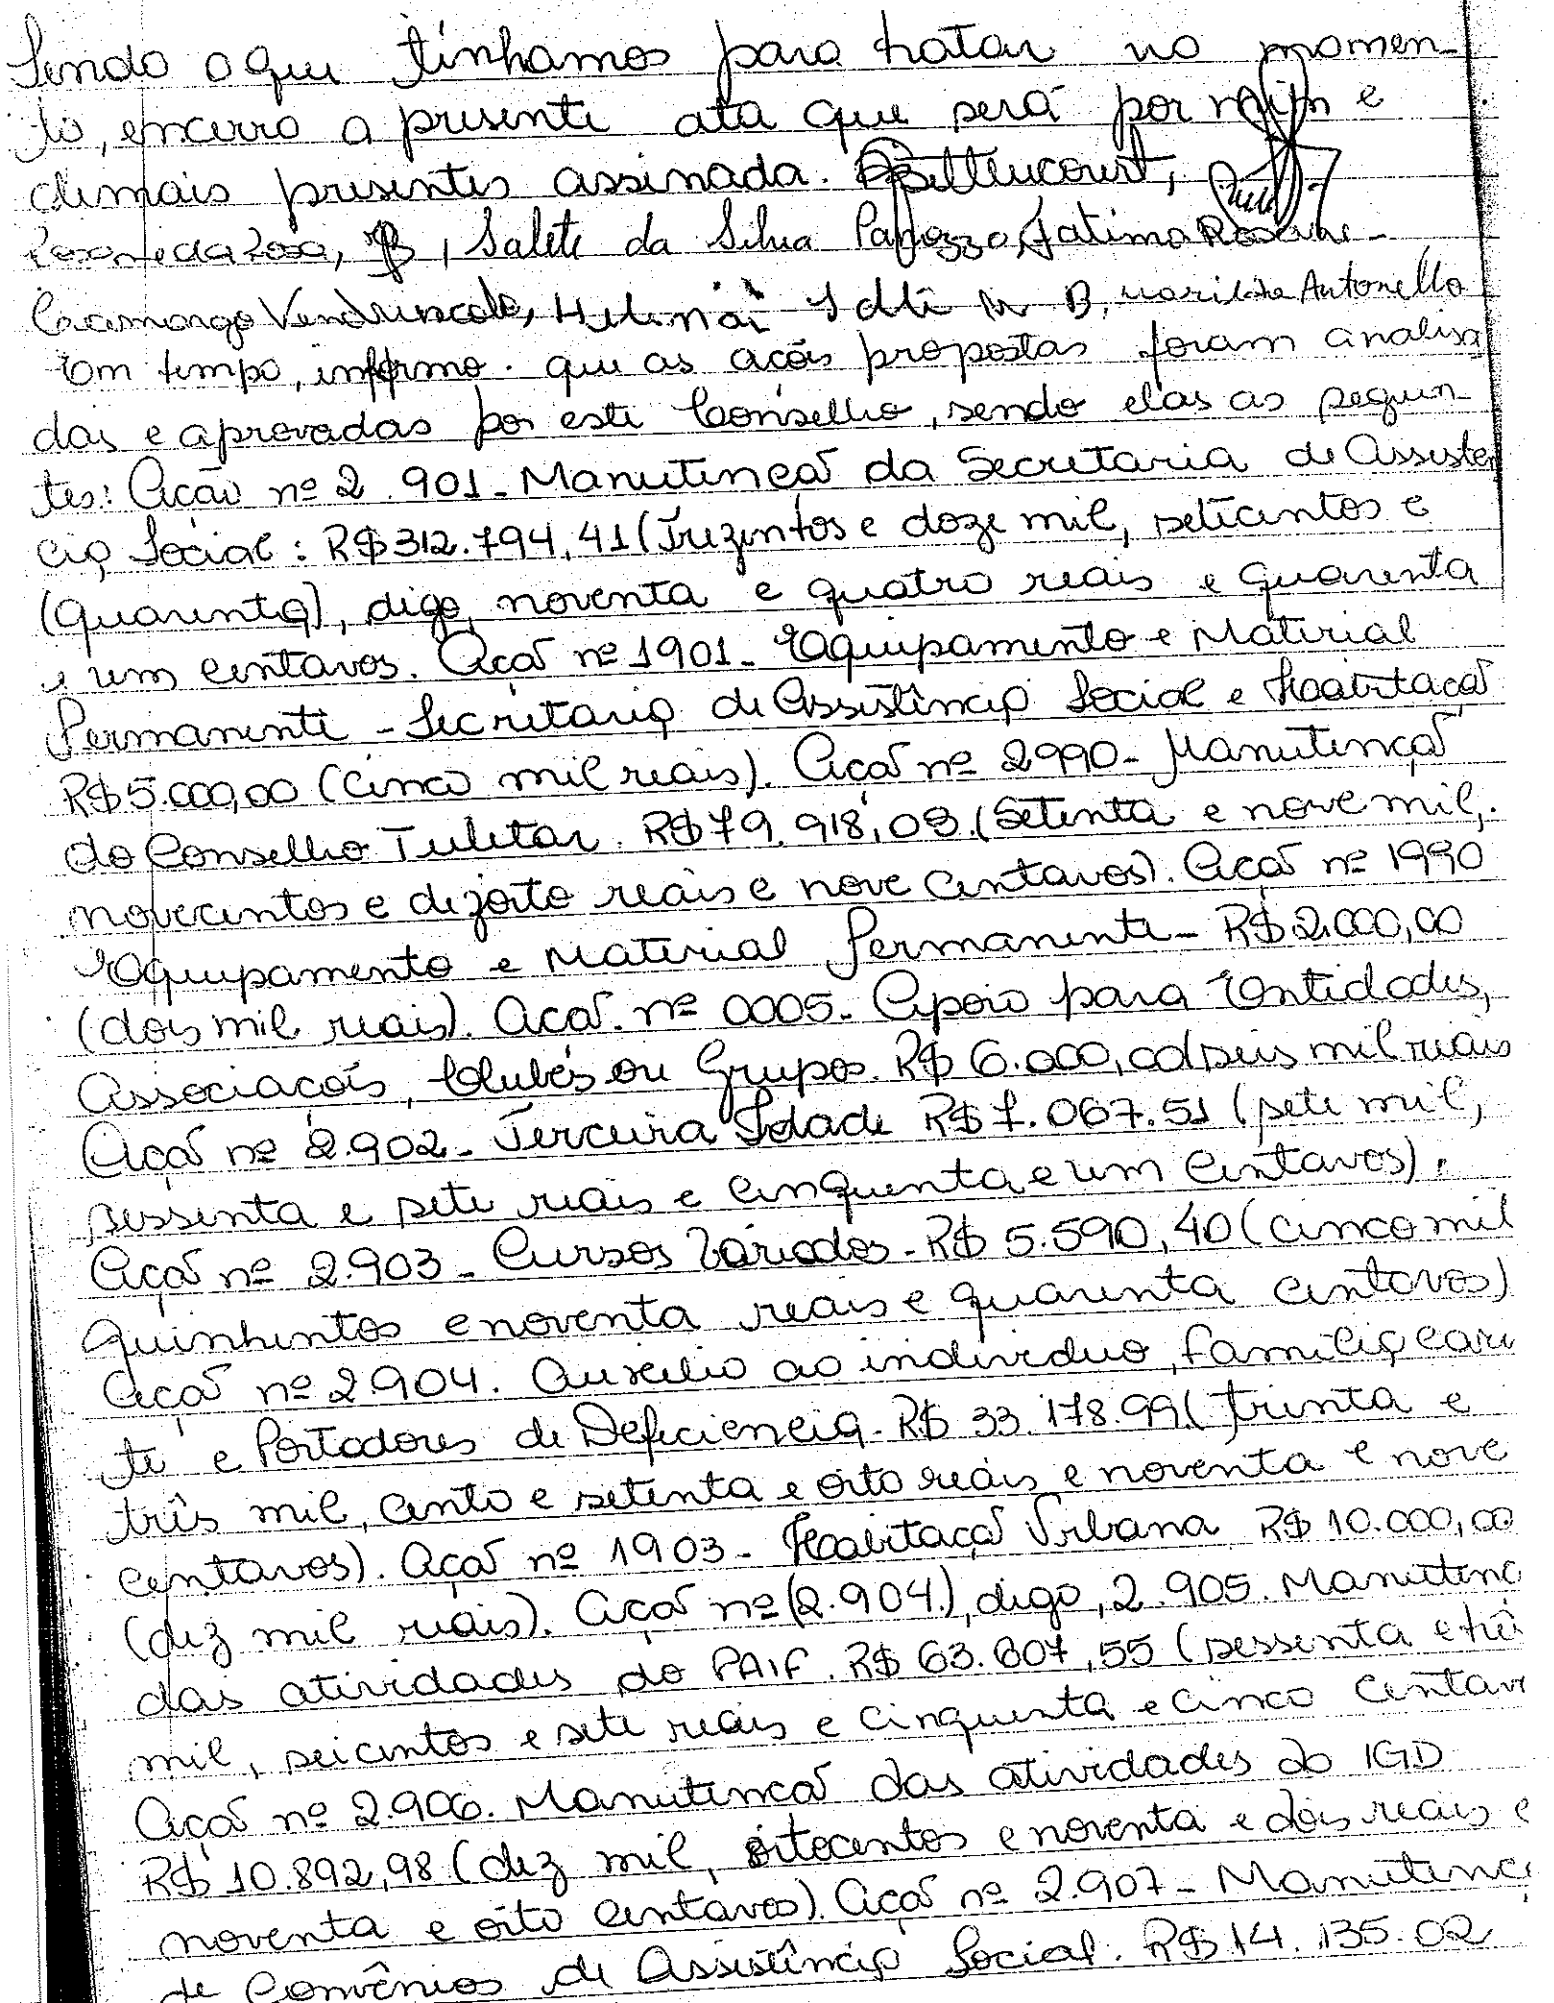 Sendo o que tinhamos para tratar no momen-
to, encerro a presente ata que será por mim e
demais presentes assinada. Bettencourt,
Rosane da Rosa, Salete da Silva Panozzo, Fatima Rosane
Camargo Vendruscolo, Marilise Antonello
Em tempo, informo que as acões propostas foram analisa
das e aprovadas por este Conselho, sendo elas as seguin-
tes: Ação nº 2.901 - Manutenção da Secretaria de Assistên
cia Social: R$ 312.794,41 (Trezentos e doze mil, setecentos e
(quarenta), digo, noventa e quatro reais e quarenta
e um centavos. Ação nº 1901 - Equipamento e Material
Permanente - Secretaria de Assistência Social e Habitação
R$ 5.000,00 (Cinco mil reais). Ação nº 2990 - Manutenção
do Conselho Tutelar. R$ 79.918,09. (Setenta e nove mil,
novecentos e dezoito reais e nove centavos). Ação nº 1990
Equipamento e Material Permanente - R$ 2.000,00
(dois mil reais). Ação nº 0005 - Apoio para Entidades,
Associações, Clubes ou Grupos. R$ 6.000,00 (seis mil reais
Ação nº 2.902 - Terceira Idade R$ 7.067.51 (sete mil,
sessenta e sete reais e cinquenta e um centavos).
Ação nº 2.903 - Cursos Variados - R$ 5.590,40 (cinco mil
quinhentos e noventa reais e quarenta centavos)
Ação nº 2.904. Auxilio ao individuo, família caren
te e Portadores de Deficiencia - R$ 33.178.99 (trinta e
três mil, cento e setenta e oito reais e noventa e nove
centavos). Ação nº 1903 - Habitação Urbana R$ 10.000,00
(dez mil reais). Ação nº (2.904.), digo, 2.905. Manutenç
das atividades do PAIF. R$ 63.607,55 (sessenta e três
mil, seicentos e sete reais e cinquenta e cinco centavo
Ação nº 2.906. Manutenção das atividades do IGD
R$ 10.892,98 (dez mil, oitocentos e noventa e dois reais e
noventa e oito centavos). Ação nº 2.907 - Manutençã
de Convênios de Assistência Social. R$ 14.135.02